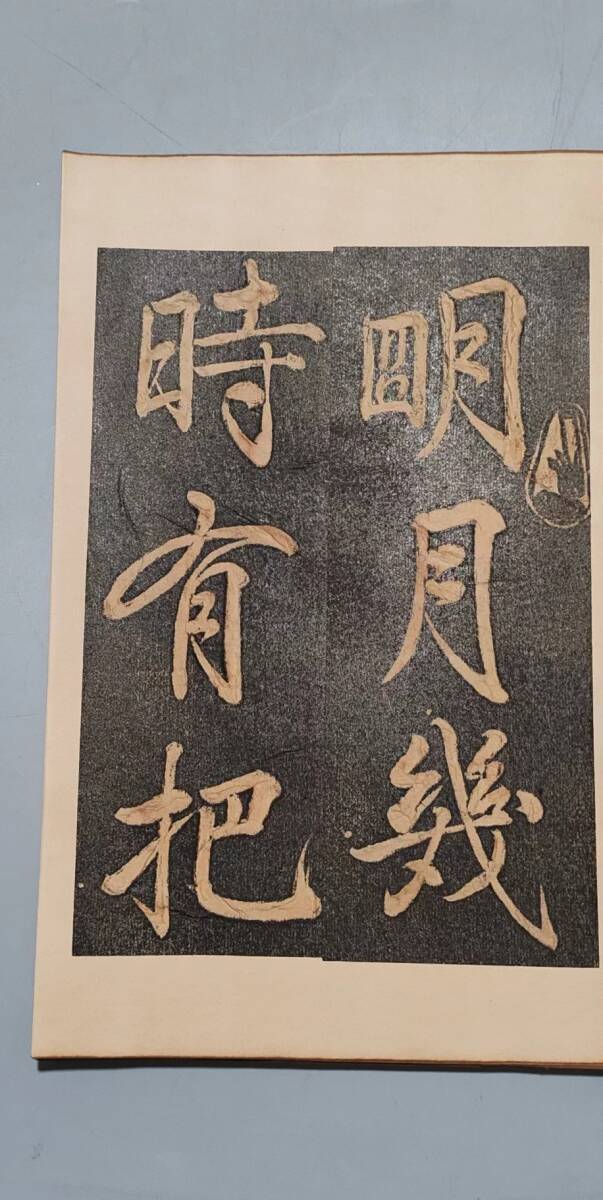 明月幾
時有把